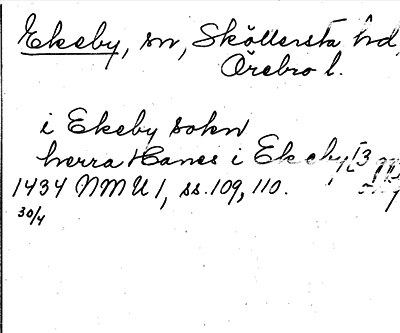 Ekeby, sn, Sköllersta hrd,
Örebro l.
i Ekeby sokn
herra Hanes i Ekeby [3
1434 NMU 1, ss. 109, 110.
30/4